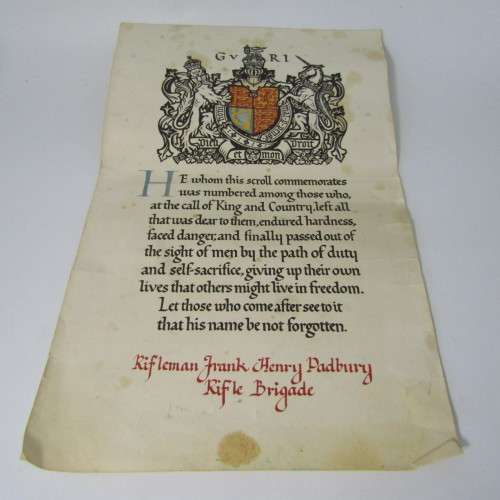 GVRI
HE whom this scroll commemorates
was numbered among those who,
at the call of King and Country, left all
that was dear to them, endured hardness,
faced danger, and finally passed out of
the sight of men by the path of duty
and self-sacrifice, giving up their own
lives that others might live in freedom.
Let those who come after see to it
that his name be not forgotten.
Rifleman Frank Henry Padbury
Rifle Brigade